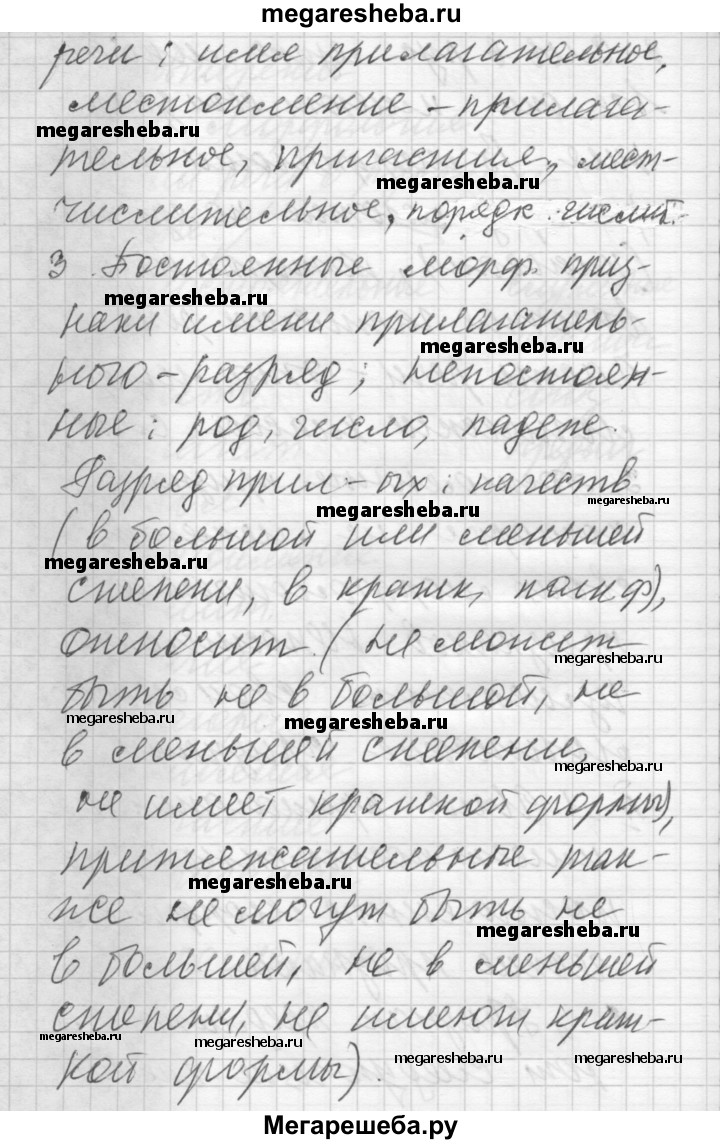 megaresheba.ru
речи: имя прилагательное,
местоимение – прилага-
megaresheba.ru
тельное, причастия, мест-
megaresheba.ru
числительное, порядк. числит.
3. Постоянные морф. приз-
megaresheba.ru
наки имени прилагатель-
megaresheba.ru
ного – разряд; непостоян-
ные: род, число, падеж.
Разряд прил-ых: качеств.
megaresheba.ru
megaresheba.ru
(в большой или меньшей
megaresheba.ru
степени, в кратк, полн ф),
относит. (не может
megaresheba.ru
быть не в большой, не
megaresheba.ru
megaresheba.ru
в меньшей степени,
megaresheba.ru
не имеет краткой формы),
притяжательные так-
megaresheba.ru
же не могут быть не
megaresheba.ru
в большей, не в меньшей
степени, не имеют крат-
megaresheba.ru
кой формы).
megaresheba.ru
megaresheba.ru
megaresheba.ru
Мегарешеба.ру